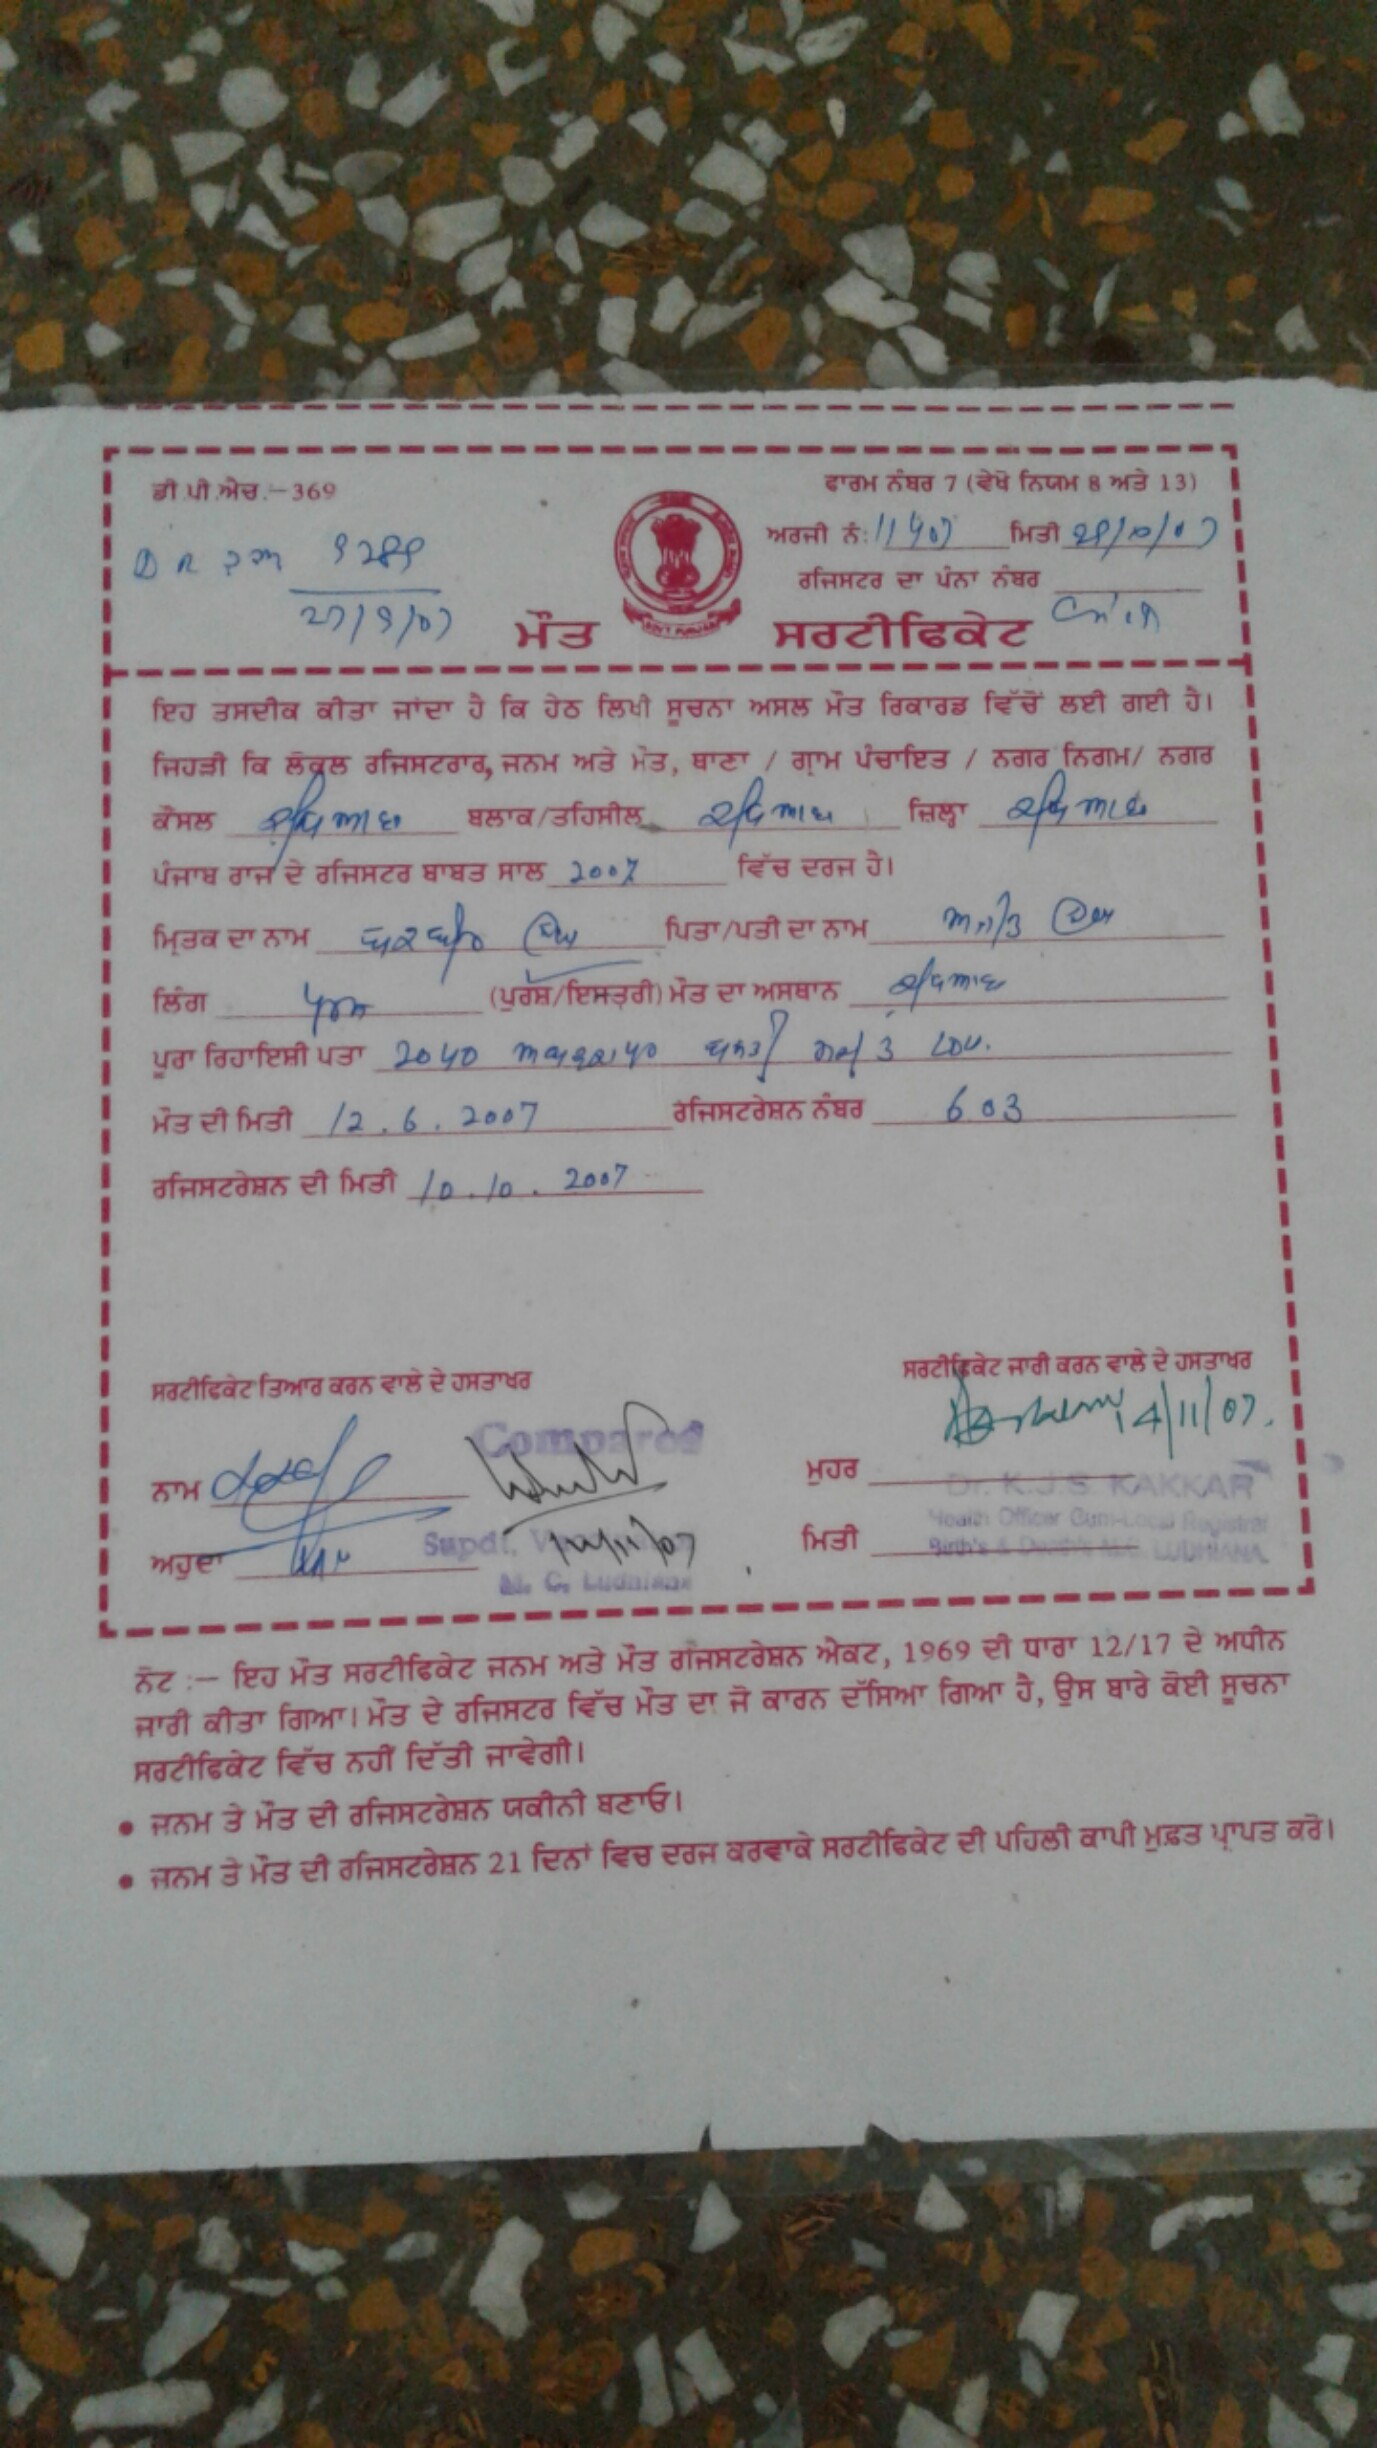 ਡੀ.ਪੀ.ਐਚ.–369
ਫਾਰਮ ਨੰਬਰ 7 (ਵੇਖੋ ਨਿਯਮ 8 ਅਤੇ 13)
ਅਰਜੀ ਨੰ: ਮਿਤੀ
ਰਜਿਸਟਰ ਦਾ ਪੰਨਾ ਨੰਬਰ
27/9/07
ਮੌਤ ਸਰਟੀਫਿਕੇਟ
ਇਹ ਤਸਦੀਕ ਕੀਤਾ ਜਾਂਦਾ ਹੈ ਕਿ ਹੇਠ ਲਿਖੀ ਸੂਚਨਾ ਅਸਲ ਮੌਤ ਰਿਕਾਰਡ ਵਿੱਚੋਂ ਲਈ ਗਈ ਹੈ।
ਜਿਹੜੀ ਕਿ ਲੋਕਲ ਰਜਿਸਟਰਾਰ, ਜਨਮ ਅਤੇ ਮੌਤ, ਥਾਣਾ / ਗ੍ਰਾਮ ਪੰਚਾਇਤ / ਨਗਰ ਨਿਗਮ/ ਨਗਰ
ਕੌਂਸਲ ਲੁਧਿਆਣਾ ਬਲਾਕ/ਤਹਿਸੀਲ ਲੁਧਿਆਣਾ ਜ਼ਿਲ੍ਹਾ ਲੁਧਿਆਣਾ
ਪੰਜਾਬ ਰਾਜ ਦੇ ਰਜਿਸਟਰ ਬਾਬਤ ਸਾਲ 2007 ਵਿੱਚ ਦਰਜ ਹੈ।
ਮ੍ਰਿਤਕ ਦਾ ਨਾਮ ਸਿੰਘ ਪਿਤਾ/ਪਤੀ ਦਾ ਨਾਮ ਸਿੰਘ
ਲਿੰਗ ਪੁਰਸ਼ (ਪੁਰਸ਼/ਇਸਤਰੀ) ਮੌਤ ਦਾ ਅਸਥਾਨ ਲੁਧਿਆਣਾ
ਪੂਰਾ ਰਿਹਾਇਸ਼ੀ ਪਤਾ 3 LDH.
ਮੌਤ ਦੀ ਮਿਤੀ 12.6.2007 ਰਜਿਸਟਰੇਸ਼ਨ ਨੰਬਰ 603
ਰਜਿਸਟਰੇਸ਼ਨ ਦੀ ਮਿਤੀ 10.10.2007
ਸਰਟੀਫਿਕੇਟ ਤਿਆਰ ਕਰਨ ਵਾਲੇ ਦੇ ਹਸਤਾਖਰ
ਸਰਟੀਫਿਕੇਟ ਜਾਰੀ ਕਰਨ ਵਾਲੇ ਦੇ ਹਸਤਾਖਰ
14/11/07.
Compared
ਨਾਮ
ਮੁਹਰ
Dr. K.J.S. KAKKAR
Health Officer Cum-Local Registrar
ਅਹੁਦਾ
Supdt.
ਮਿਤੀ
Birth's & Death's M.C. LUDHIANA
M. C. Ludhiana
ਨੋਟ :— ਇਹ ਮੌਤ ਸਰਟੀਫਿਕੇਟ ਜਨਮ ਅਤੇ ਮੌਤ ਰਜਿਸਟਰੇਸ਼ਨ ਐਕਟ, 1969 ਦੀ ਧਾਰਾ 12/17 ਦੇ ਅਧੀਨ
ਜਾਰੀ ਕੀਤਾ ਗਿਆ। ਮੌਤ ਦੇ ਰਜਿਸਟਰ ਵਿੱਚ ਮੌਤ ਦਾ ਜੋ ਕਾਰਨ ਦੱਸਿਆ ਗਿਆ ਹੈ, ਉਸ ਬਾਰੇ ਕੋਈ ਸੂਚਨਾ
ਸਰਟੀਫਿਕੇਟ ਵਿੱਚ ਨਹੀਂ ਦਿੱਤੀ ਜਾਵੇਗੀ।
● ਜਨਮ ਤੇ ਮੌਤ ਦੀ ਰਜਿਸਟਰੇਸ਼ਨ ਯਕੀਨੀ ਬਣਾਓ।
● ਜਨਮ ਤੇ ਮੌਤ ਦੀ ਰਜਿਸਟਰੇਸ਼ਨ 21 ਦਿਨਾਂ ਵਿਚ ਦਰਜ ਕਰਵਾਕੇ ਸਰਟੀਫਿਕੇਟ ਦੀ ਪਹਿਲੀ ਕਾਪੀ ਮੁਫ਼ਤ ਪ੍ਰਾਪਤ ਕਰੋ।